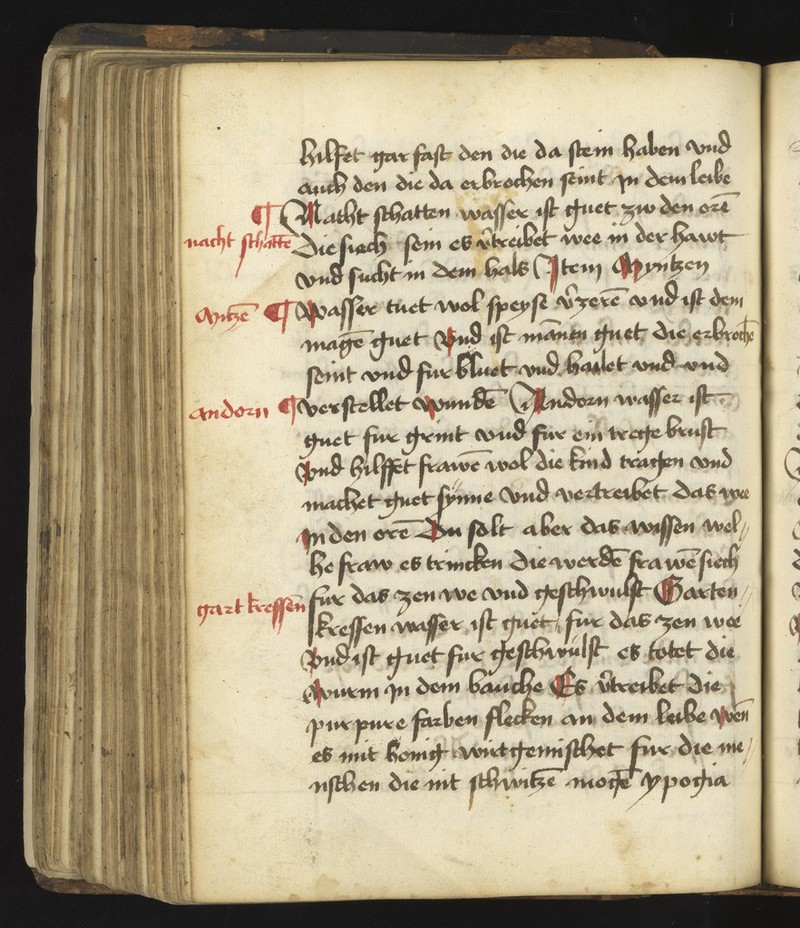 hilfet gar fast den die da stein haben vnd
auch den die da erbrochen seint jn dem leibe
¶ Nacht schatten wasser ist guet zw den orē
nacht schattē
die siech sein es v̄treibet wee in der hawt
vnd sucht in dem hals Item Myntzen
mitzē ¶ wasser tuet wol speyse v̄zerē vnd ist dem
magē guet Vnd ist mānen guet die erbrochē
seint vnd fur bluet vnd hailet vnd vnd
andorn ¶ verstellet wundē Andorn wasser ist
guet fur grint vnd fur ein trege brust
Vnd hilffet frawē wol die kind tragen vnd
machet guet synne vnd vertreibet das wee
jn den orē Du solt aber das wissen wel-
he fraw es trincken die werdē frawē siech
gart kressen fur das zen we vnd geschwulst Garten
kressen wasser ist guet fur das zen wee
Vnd ist guet fur geschwulst es totet die
wurm jn dem bauche Es v̄treibet die
purpure farben flecken an dem leibe wen̄
es mit honig wirt gemischet fur die me
nschen die nit schwitzē mogē ypogia